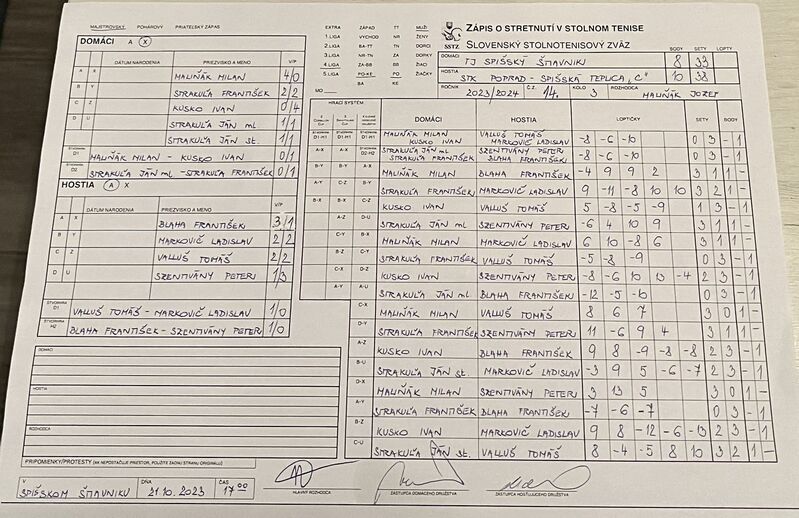 MAJSTROVSKÝ POHÁROVÝ PRIATEĽSKÝ ZÁPAS
DOMÁCI A X
DÁTUM NARODENIA PRIEZVISKO A MENO V/P
A X MALIŇÁK MILAN 4/0
B Y STRAKUĽA FRANTIŠEK 2/2
C Z KUSKO IVAN 0/4
D U STRAKUĽA JÁN ml 1/1
STRAKUĽA JÁN st. 1/1
D1 MALIŇÁK MILAN - KUSKO IVAN 0/1
D2 STRAKUĽA JÁN ml - STRAKUĽA FRANTIŠEK 0/1
HOSTIA A X
DÁTUM NARODENIA PRIEZVISKO A MENO V/P
A X BLAHA FRANTIŠEK 3/1
B Y MARKOVIČ LADISLAV 2/2
C Z VALLUŠ TOMÁŠ 2/2
D U SZENTIVÁNY PETER 1/3
ŠTVORHRA D1 VALLUŠ TOMÁŠ - MARKOVIČ LADISLAV 1/0
ŠTVORHRA H2 BLAHA FRANTIŠEK - SZENTIVÁNY PETER 1/0
DOMÁCI
HOSTIA
ROZHODCA
PRIPOMIENKY/PROTESTY (AK NEPOSTAČUJE PRIESTOR, POUŽITE ZADNÚ STRANU ORIGINÁLU)
V SPIŠSKOM ŠTIAVNIKU DŇA 21.10.2023 ČAS 17 00
HLAVNÝ ROZHODCA ZÁSTUPCA DOMÁCEHO DRUŽSTVA ZÁSTUPCA HOSŤUJÚCEHO DRUŽSTVA
EXTRA ZÁPAD TT MUŽI
1.LIGA VÝCHOD NR ŽENY
2.LIGA BA-TT TN DORCI
3.LIGA NR-TN ZA DORKY
4.LIGA ZA-BB BB ŽIACI
5.LIGA PO-KE PO ŽIAČKY
BA KE
MO
SSTZ
ZÁPIS O STRETNUTÍ V STOLNOM TENISE
SLOVENSKÝ STOLNOTENISOVÝ ZVÄZ
BODY SETY LOPTY
DOMÁCI TJ SPIŠSKÝ ŠTIAVNIK 8 33
HOSTIA STK POPRAD - SPIŠSKÁ TEPLICA "C" 10 38
ROČNÍK 2023/2024 Č.Z. 14. KOLO 3 ROZHODCA MALIŇÁK JOZEF
HRACÍ SYSTÉM
DOMÁCI HOSTIA LOPTIČKY SETY BODY
MALIŇÁK MILAN KUSKO IVAN VALLUŠ TOMÁŠ MARKOVIČ LADISLAV -8 -6 -10 0 3 - 1
STRAKUĽA JÁN ml STRAKUĽA FRANTIŠEK SZENTIVÁNY PETER BLAHA FRANTIŠEK -8 -6 -10 0 3 - 1
MALIŇÁK MILAN BLAHA FRANTIŠEK -4 9 9 2 3 1 1 -
STRAKUĽA FRANTIŠEK MARKOVIČ LADISLAV 9 -11 -8 10 10 3 2 1 -
KUSKO IVAN VALLUŠ TOMÁŠ 5 -8 -5 -9 1 3 - 1
STRAKUĽA JÁN ml SZENTIVÁNY PETER -6 4 10 9 3 1 1 -
MALIŇÁK MILAN MARKOVIČ LADISLAV 6 10 -8 6 3 1 1 -
STRAKUĽA FRANTIŠEK VALLUŠ TOMÁŠ -5 -8 -9 0 3 - 1
KUSKO IVAN SZENTIVÁNY PETER -8 -6 10 13 -4 2 3 - 1
STRAKUĽA JÁN ml BLAHA FRANTIŠEK -12 -5 -6 0 3 - 1
C-X MALIŇÁK MILAN VALLUŠ TOMÁŠ 8 6 7 3 0 1 -
D-Y STRAKUĽA FRANTIŠEK SZENTIVÁNY PETER 11 -6 9 4 3 1 1 -
A-Z KUSKO IVAN BLAHA FRANTIŠEK 9 8 -9 -8 -8 2 3 - 1
B-U STRAKUĽA JÁN st. MARKOVIČ LADISLAV -3 9 5 -6 -7 2 3 - 1
D-X MALIŇÁK MILAN SZENTIVÁNY PETER 3 13 5 3 0 1 -
A-Y STRAKUĽA FRANTIŠEK BLAHA FRANTIŠEK -7 -6 -7 0 3 - 1
B-Z KUSKO IVAN MARKOVIČ LADISLAV 9 8 -12 -6 -13 2 3 - 1
C-U STRAKUĽA JÁN st. VALLUŠ TOMÁŠ 8 -4 -5 8 10 3 2 1 -